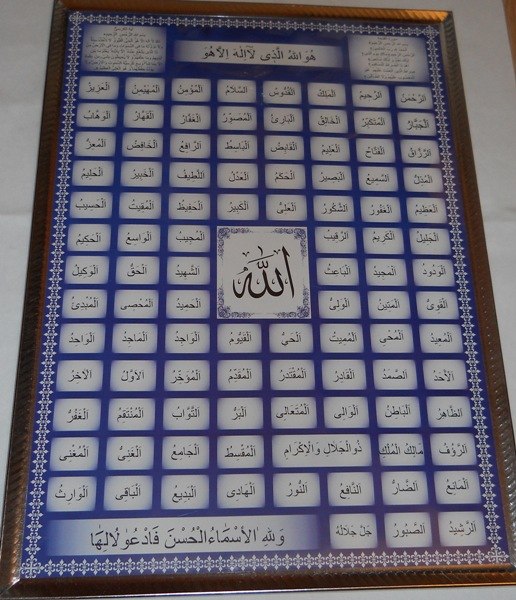 هُوَ اللهُ الَّذِی لَآاِلٰهَ اِلَّاهُوَ
اَلرَّحْمٰنُ اَلرَّحِیمُ اَلْمَلِكُ اَلْقُدُّوسُ اَلسَّلَامُ اَلْمُؤْمِنُ اَلْمُهَیْمِنُ اَلْعَزِیزُ
اَلْجَبَّارُ اَلْمُتَكَبِّرُ اَلْخَالِقُ اَلْبَارِئُ اَلْمُصَوِّرُ اَلْغَفَّارُ اَلْقَهَّارُ اَلْوَهَّابُ
اَلرَّزَّاقُ اَلْفَتَّاحُ اَلْعَلِیمُ اَلْقَابِضُ اَلْبَاسِطُ اَلرَّافِعُ اَلْخَافِضُ اَلْمُعِزُّ
اَلْمُذِلُّ اَلسَّمِیعُ اَلْبَصِیرُ اَلْحَكَمُ اَلْعَدْلُ اَللَّطِیفُ اَلْخَبِیرُ اَلْحَلِیمُ
اَلْعَظِیمُ اَلْغَفُورُ اَلشَّكُورُ اَلْعَلِیُّ اَلْكَبِیرُ اَلْحَفِیظُ اَلْمُقِیتُ اَلْحَسِیبُ
اَلْجَلِیلُ اَلْكَرِیمُ اَلرَّقِیبُ اَلْمُجِیبُ اَلْوَاسِعُ اَلْحَكِیمُ
اَلْوَدُودُ اَلْمَجِیدُ اَلْبَاعِثُ اَلشَّهِیدُ اَلْحَقُّ اَلْوَكِیلُ
الله
اَلْقَوِیُّ اَلْمَتِینُ اَلْوَلِیُّ اَلْحَمِیدُ اَلْمُحْصِی اَلْمُبْدِئُ
اَلْمُعِیدُ اَلْمُحْیِی اَلْمُمِیتُ اَلْحَیُّ اَلْقَیُّومُ اَلْوَاجِدُ اَلْمَاجِدُ اَلْوَاحِدُ
اَلْاَحَدُ اَلصَّمَدُ اَلْقَادِرُ اَلْمُقْتَدِرُ اَلْمُقَدِّمُ اَلْمُؤَخِّرُ اَلْاَوَّلُ اَلْآخِرُ
اَلظَّاهِرُ اَلْبَاطِنُ اَلْوَالِی اَلْمُتَعَالِی اَلْبَرُّ اَلتَّوَّابُ اَلْمُنْتَقِمُ اَلْعَفُوُّ
اَلرَّؤُفُ مَالِكُ الْمُلْكِ ذُوالْجَلَالِ وَالْاِكْرَامِ اَلْمُقْسِطُ اَلْجَامِعُ اَلْغَنِیُّ اَلْمُغْنِی
اَلْمَانِعُ اَلضَّارُّ اَلنَّافِعُ اَلنُّورُ اَلْهَادِی اَلْبَدِیعُ اَلْبَاقِی اَلْوَارِثُ
اَلرَّشِیدُ اَلصَّبُورُ جَلَّ جَلَالُهُ
وَلِلّٰهِ الْاَسْمَاءُ الْحُسْنَ فَادْعُولُالِهَا